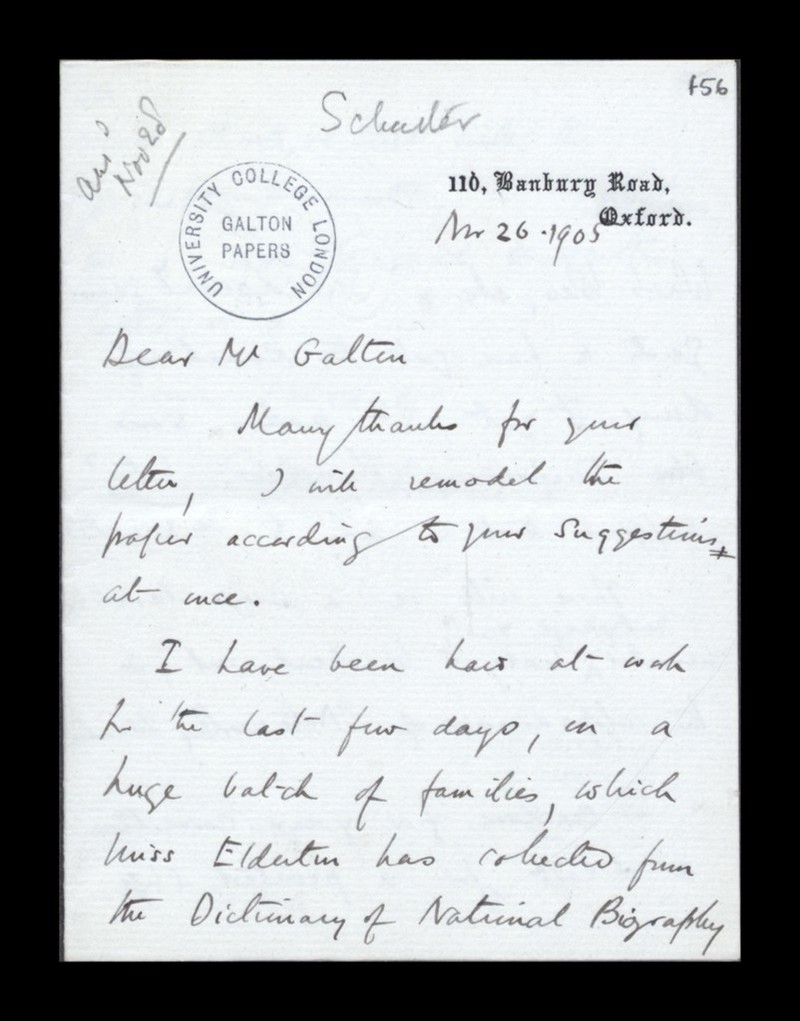 156
Schuster
ansd
Nov 28
UNIVERSITY COLLEGE LONDON
GALTON
PAPERS
110, Banbury Road,
Oxford.
Nov 26 · 1905
Dear Mr Galton
Many thanks for your
letter, I will remodel the
paper according to your suggestions
at once.
I have been hard at work
for the last few days, on a
huge batch of families, which
Miss Elderton has collected from
the Dictionary of National Biography